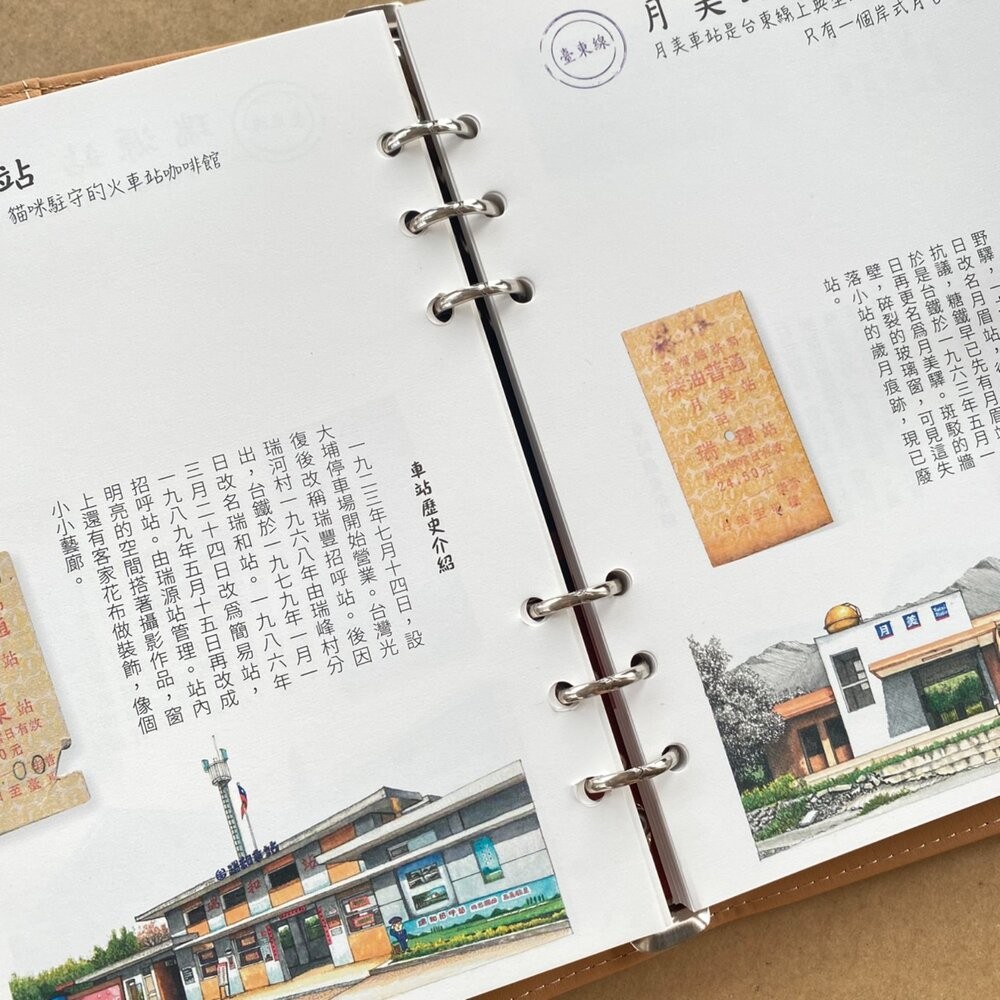 站
貓咪駐守的火車站咖啡館
車站歷史介紹
一九二三年七月十四日，設
大埔停車場開始營業。台灣光
復後改稱瑞豐招呼站。後因
瑞河村一九六八年由瑞峰村分
出，台鐵於一九七九年一月一
日改名瑞和站。一九八六年
三月二十四日改爲簡易站，
一九八九年五月十五日再改成
招呼站。由瑞源站管理。站內
明亮的空間搭著攝影作品，窗
上還有客家花布做裝飾，像個
小小藝廊。
站
東站
日有效
0元
00
瑞和車站
和站
臺東線
月美
月美車站是台東線上
只有一個岸式月
野驛，一
日改名月眉站，
抗議，糖鐵早已先有月眉
於是台鐵於一九六三年五月一
日再更名爲月美驛。斑駁的牆
壁，碎裂的玻璃窗，可見這失
落小站的歲月痕跡，現已廢
站。
柴油普通
月美站
至
瑞穗站
24.50元
月美